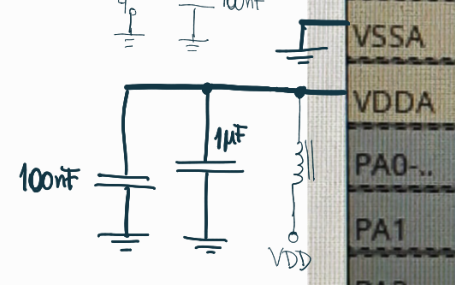 100nF
VSSA
VDDA
1µF
PA0-..
100nF
PA1
VDD